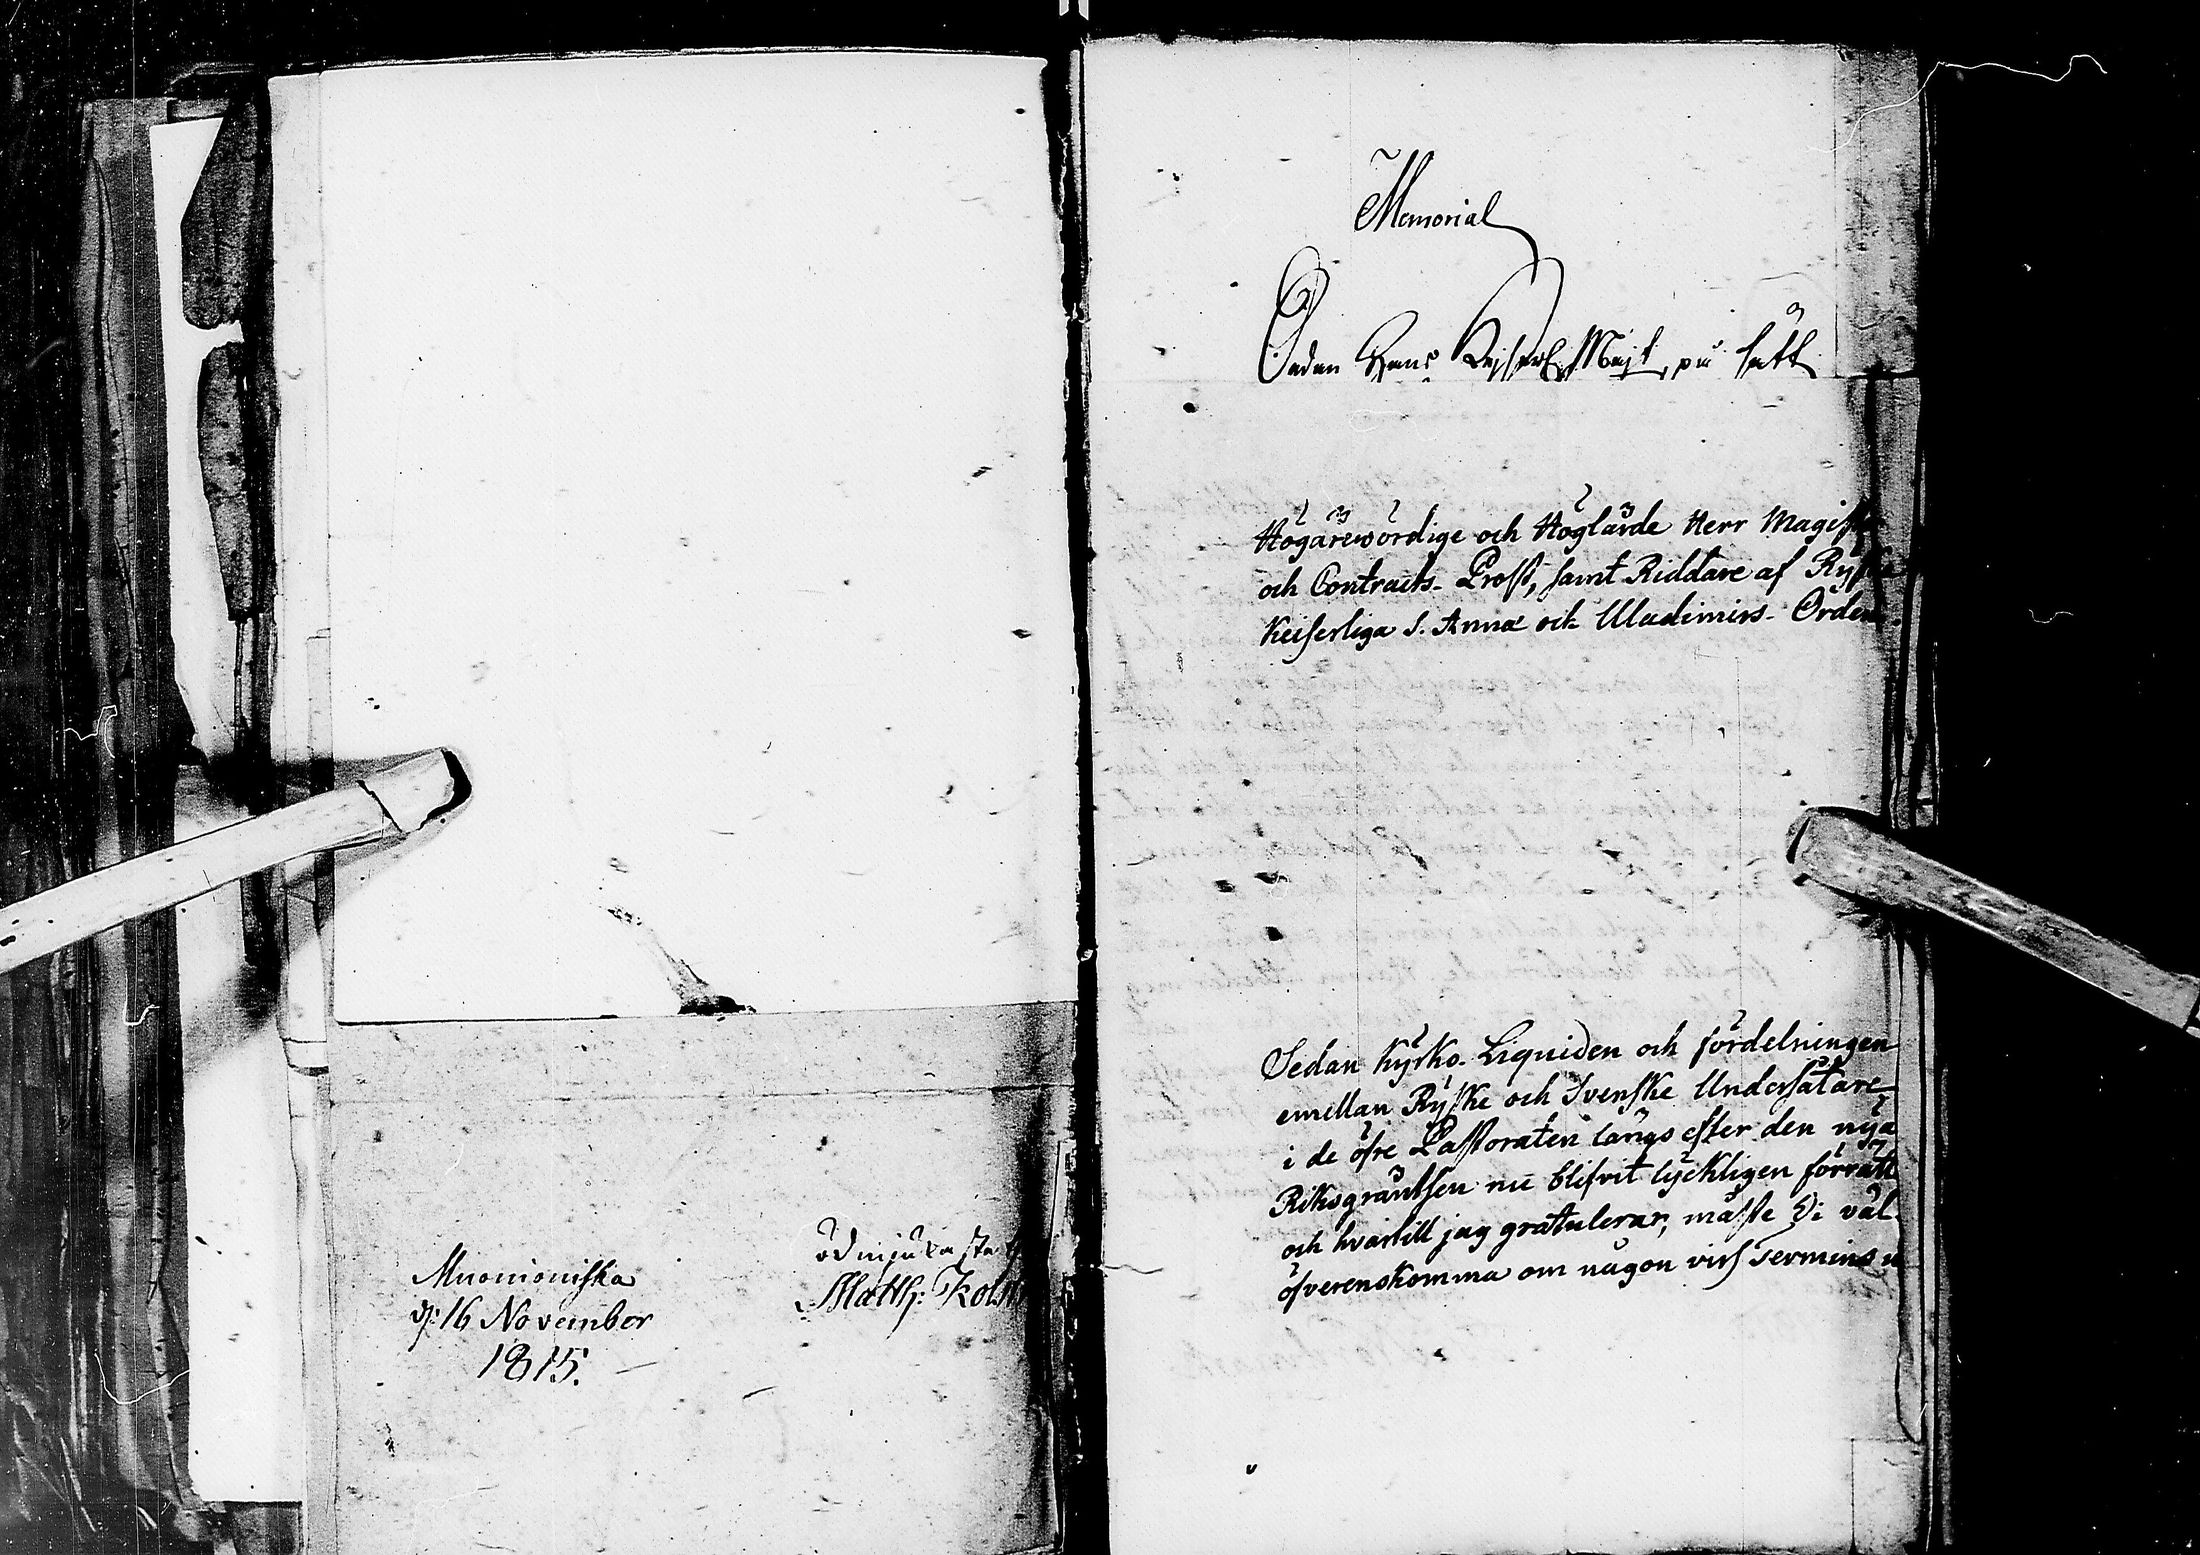 Muonioniska
d: 16 November
1815.
ödmjukaste
Matth: Kolst
Memorial
Sedan Hans Kejserl. Majt, på sätt
Högärewördige och Höglärde Herr Magist
och Contracts- Prost, samt Riddare af Ryske
Keiserliga S. Annæ och Wladimirs- Orden.
Sedan Kyrko- Liquiden och fördelningen
emellan Ryske och Svenske Undersåtare
i de öfre Pastoraten längs efter den nya
Riksgräntsen nu blifvit lyckligen förrätt
och hvartill jag gratulerar, måste Vi väl
öfverenskomma om någon viss Termins